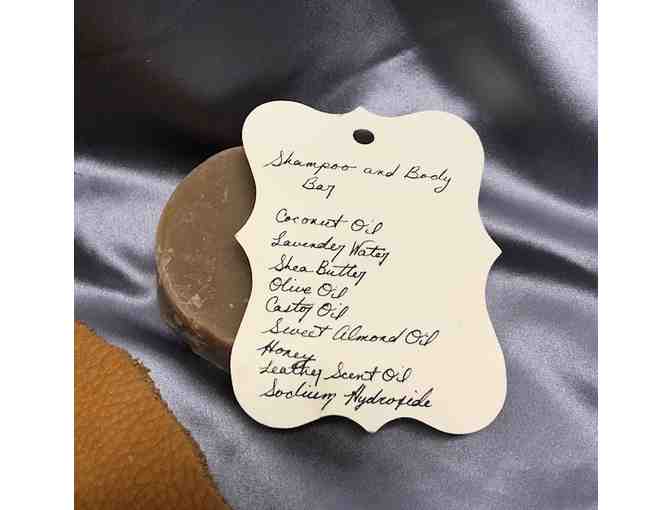 Shampoo and Body
Bar
Coconut Oil
Lavender Water
Shea Butter
Olive Oil
Castor Oil
Sweet Almond Oil
Honey
Leather Scent Oil
Sodium Hydroxide